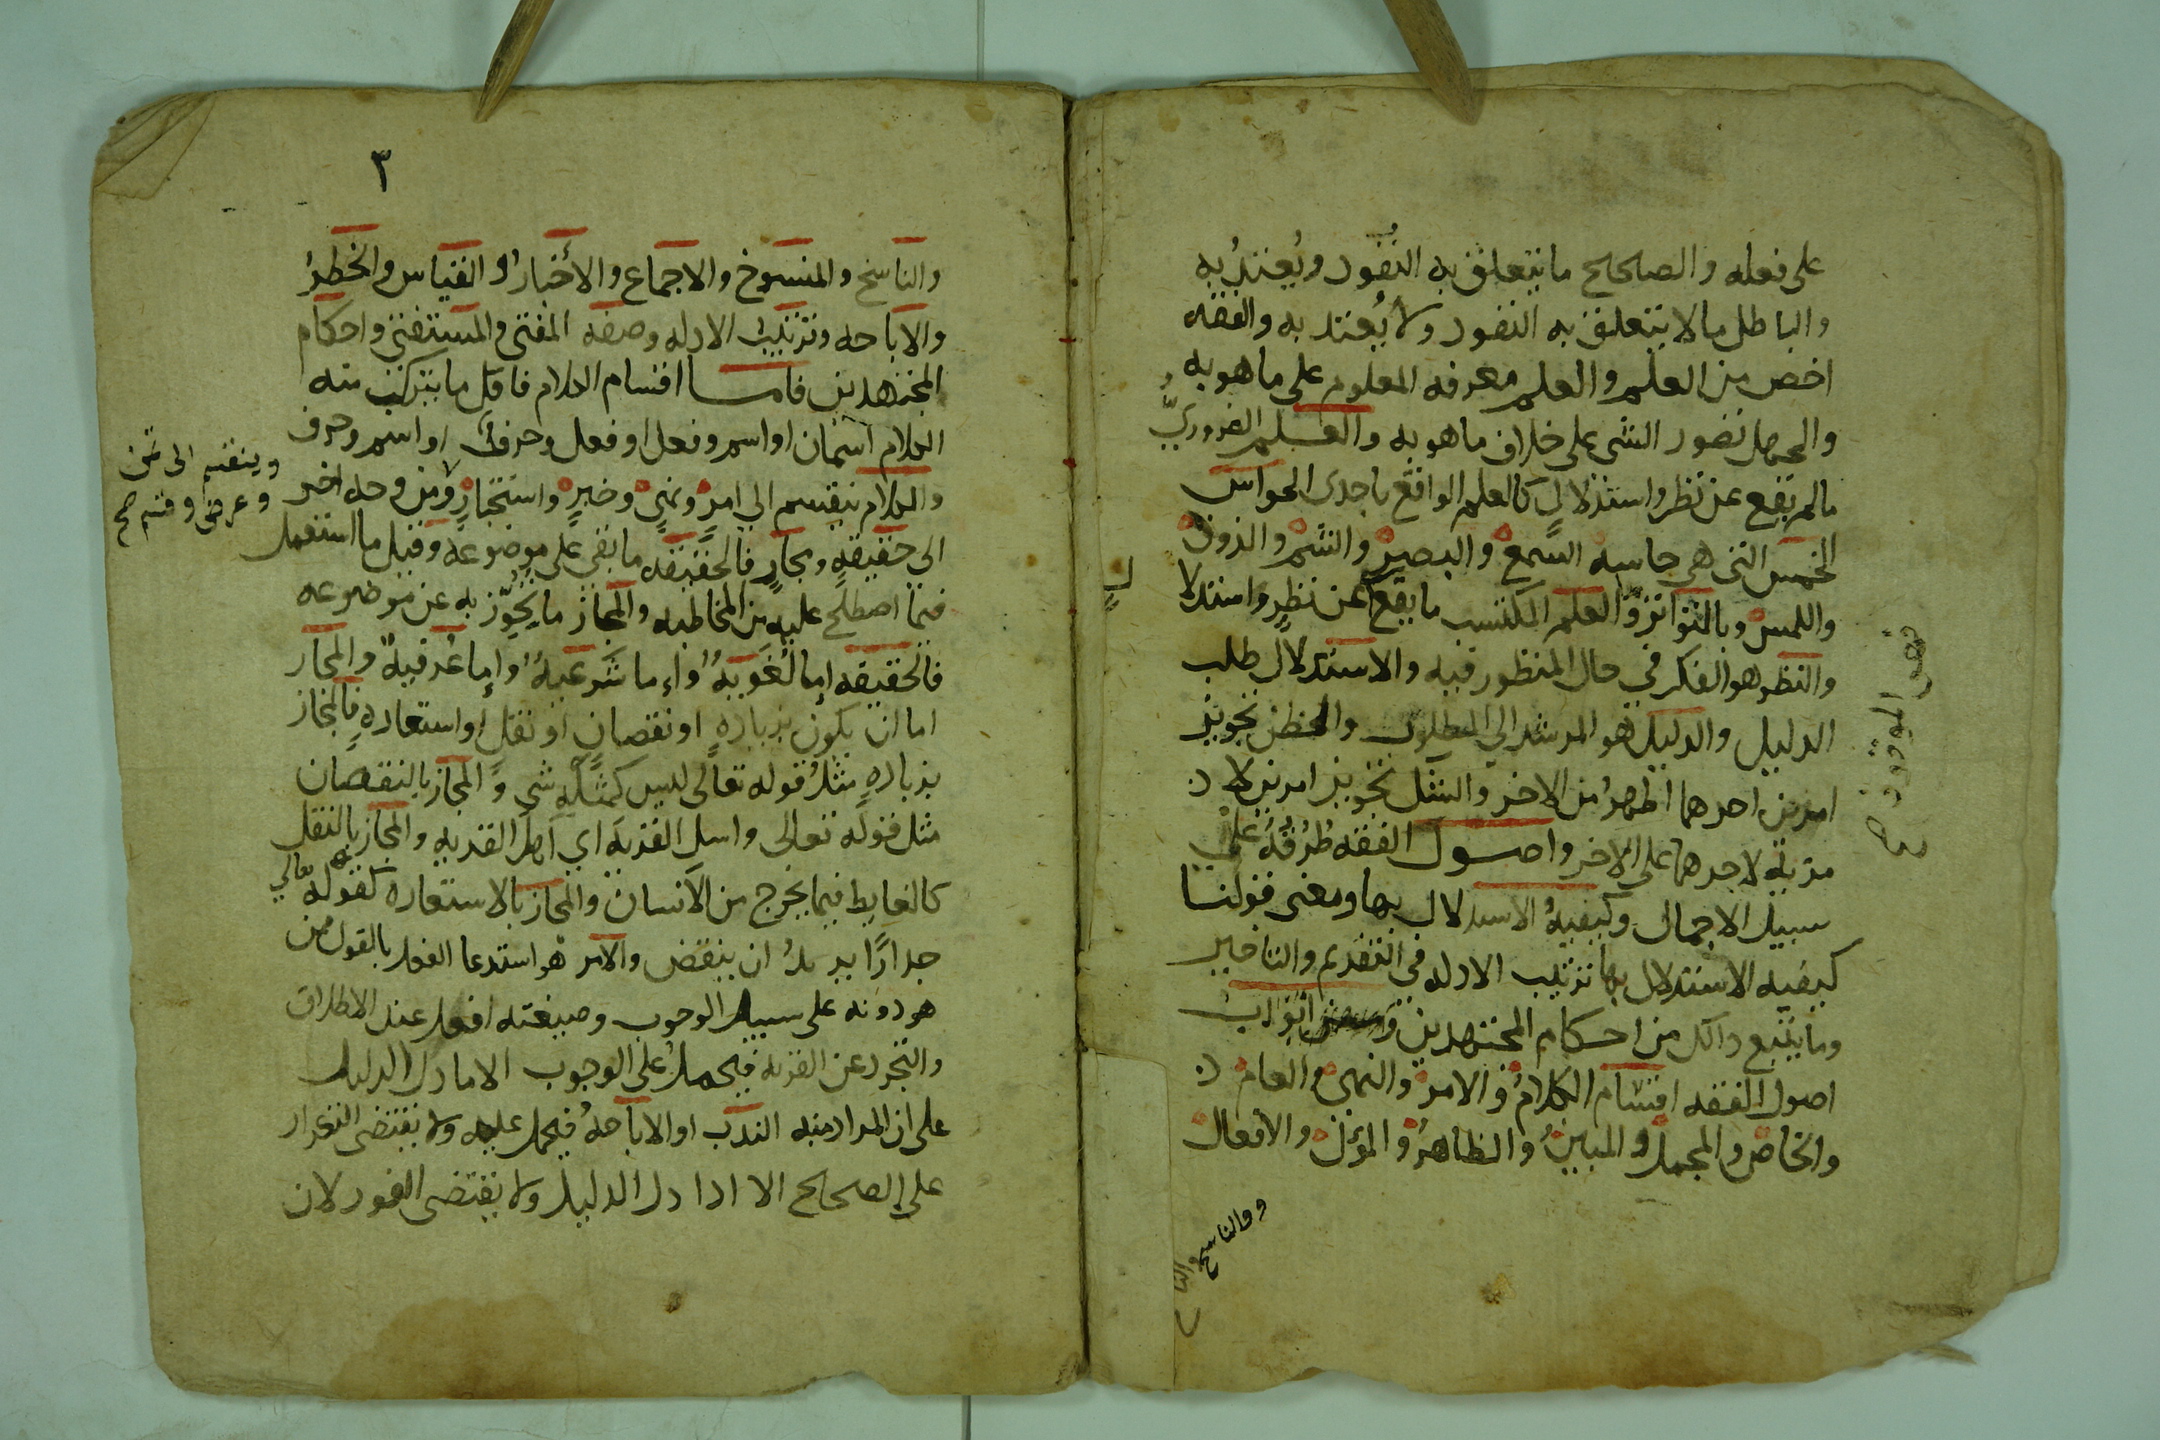 على فعله والصحيح ما يتعلق به النفوذ ويُعتدُّ به
والباطل ما لا يتعلق به النفوذ ولا يُعتد به والفقه
اخص من العلم والعلم معرفه المعلوم على ما هو به
والجهل تصور الشى على خلاف ما هو به والعلم الضروريُّ
ما لم يقع عن نظر واستدلالٍ كالعلم الواقع باحدى الحواس
الخمس التى هى حاسه السمع والبصر والشم والذوق
واللمس وبالتواتر والعلم المكتسب ما يقع عن نظرٍ واستدلا
لٍ
والنظر هو الفكر في حال المنظور فيه والاستدلال طلب
الدليل والدليل هو المرشد الى المطلوب والظن تجويز
امرين احدهما اظهر من الاخر والشك تجويز امرين لا
مزيه لاحدهما على الاخر واصول الفقه طُرُقُهُ على
سبيل الاجمال وكيفيهُ الاستدلال بها ومعنى قولنا
كيفيه الاستدلال بها ترتيب الادله فى التقديم والتاخير
وما يتبع ذالك من احكام المجتهدين و ابواب
اصول الفقه اقسام الكلام و الامر والنهى والعام
والخاص والمجمل والمبين والظاهر والمؤل والافعال
والناسخ
٣
والناسخ والمنسوخ والاجماع والاخبار والقياس والحظر
والاباحه وترتيب الادله وصفه المفتى والمستفتى واحكام
المجتهدين فاما اقسام الكلام فاقل ما يتركب منه
الكلام اسمان او اسم وفعل او فعل وحرف او اسم وحرف
والكلام ينقسم الى امرٍ ونهىٍ وخبرٍ واستخبارٍ ومن وجه اخر
وينقسم الى تمن
وعرض وقسم صح
الى حقيقهٍ ومجازٍ فالحقيقه ما بقى على موضوعه وقيل ما استعمل
فيما اصطلح عليه من المخاطبه والمجاز ما تُجُوِّز به عن موضوعه
فالحقيقه إما لغويهٌ وإما شرعيهٌ وإما عُرفيهٌ والمجاز
اما ان يكون بزيادهٍ او نقصانٍ او نقلٍ او استعارهٍ فالمجاز
بزيادهٍ مثلُ قوله تعالى ليس كمثله شى والمجاز بالنقصان
مثل قوله تعالى واسل القريه اي اهل القريه والمجاز بالنقل
كالغايط فيما يخرج من الانسان والمجاز بالاستعاره كقوله تعالي
جدارًا يريدُ ان ينقض والامر هو استدعا الفعل بالقول ممن
هو دونه على سبيل الوجوب وصيغته افعل عند الاطلاق
والتجرد عن القرينه فيحملُ على الوجوب الا ما دل الدليل
على ان المراد منه الندب او الاباحه فيحمل عليه ولا يقتضى التكرار
على الصحيح الا اذا دل الدليل ولا يقتضى الفور لان